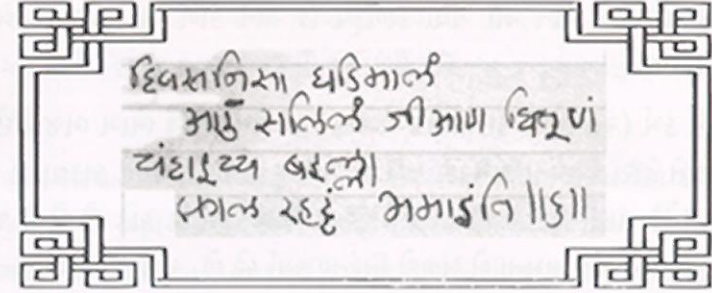 દિવસનિસા ઘડિમાલં
આઉં સલિલં જીઆણ ઘિત્તૂણં
ચંદાઇચ્ચ બઇલ્લા
કાલ રહટ્ટં ભમાડંતિ ॥૬॥